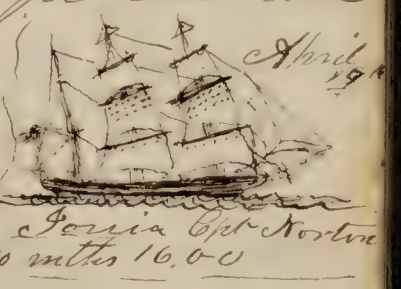 April
19th
Ionia Cpt Norton
0 mths 16.00